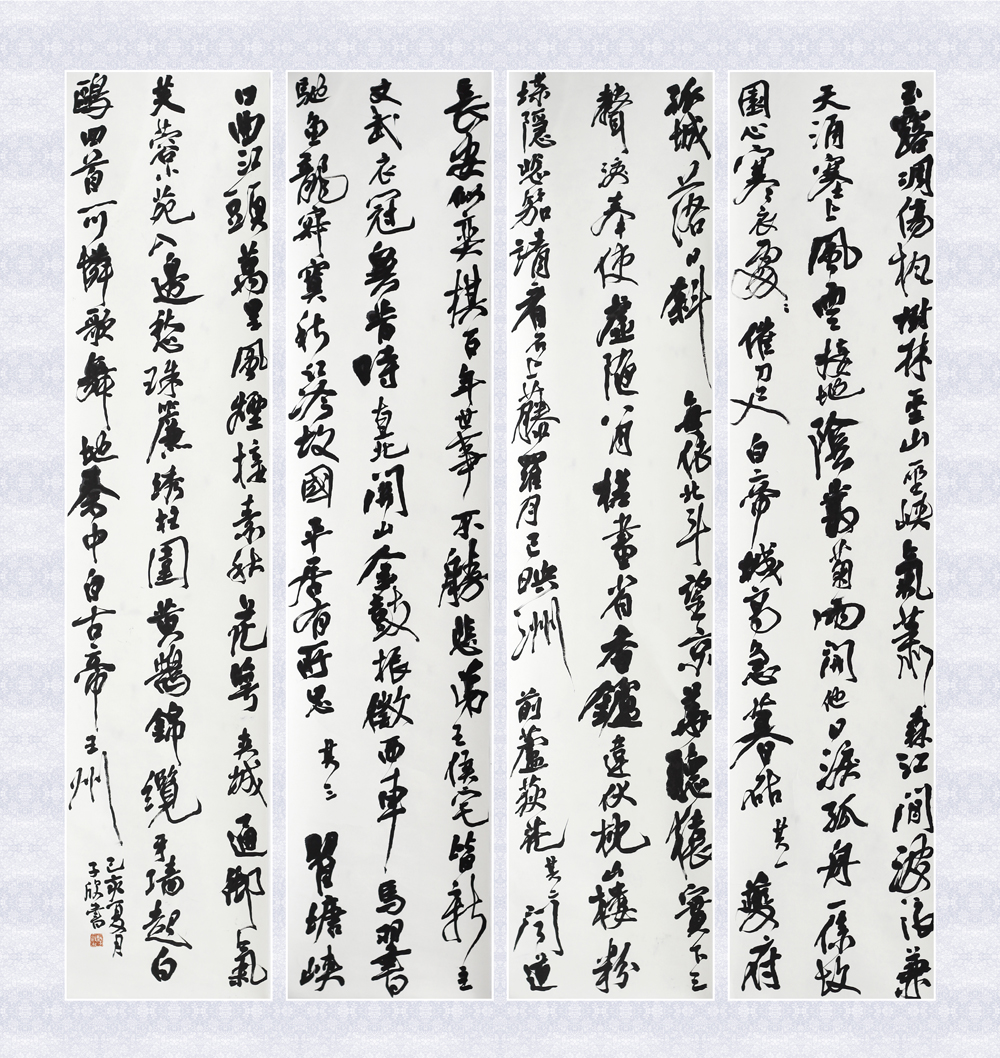 玉露凋傷楓樹林巫山巫峽氣蕭森江間波浪兼
天涌塞上風雲接地陰叢菊兩開他日淚孤舟一係故
園心寒衣處〻催刀尺白帝城高急暮砧其一夔府
孤城落日斜每依北斗望京華聽猿實下三
聲淚奉使虛隨八月槎畫省香爐違伏枕山樓粉
堞隱悲笳請看石上藤蘿月已映洲前蘆荻花其二聞道
長安似奕棋百年世事不勝悲弟王侯宅皆新主
文武衣冠異昔時直北關山金鼓振徵西車馬羽書
馳魚龍寂寞秋江冷故國平居有所思其三瞿塘峽
口曲江頭萬里風煙接素秋花萼夾城通御氣
芙蓉小苑入邊愁珠簾綉柱圍黃鵠錦纜牙檣起白
鷗回首可憐歌舞地秦中自古帝王州
己亥夏月
子欣書